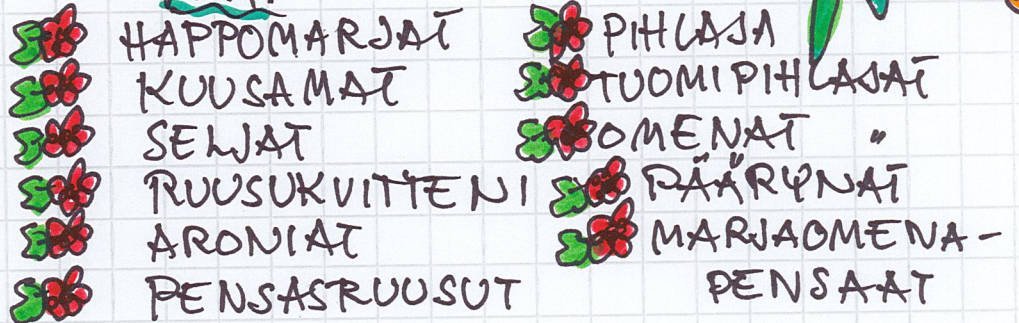 HAPPOMARJAT
KUUSAMAT
SELJAT
RUUSUKVITTENI
ARONIAT
PENSASRUUSUT
PIHLAJA
TUOMIPIHLAJAT
OMENAT "
PÄÄRYNAT
MARJAOMENA-
PENSAAT